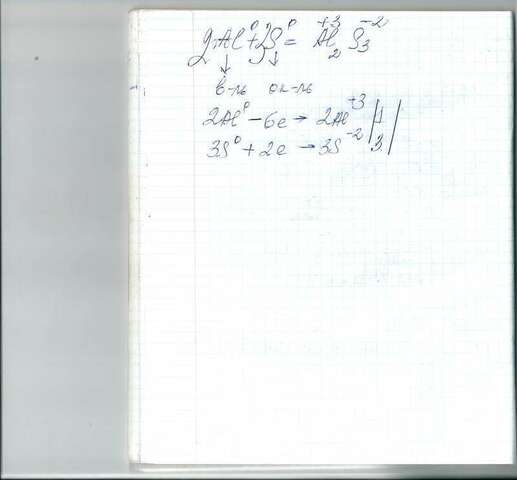 2Al⁰+3S⁰= Al₂⁺³ S₃⁻²
↓ ↓
в-ль ок-ль
2Al⁰ - 6e → 2Al⁺³ | 1 |
3S⁰ + 2e → 3S⁻² | 3 |